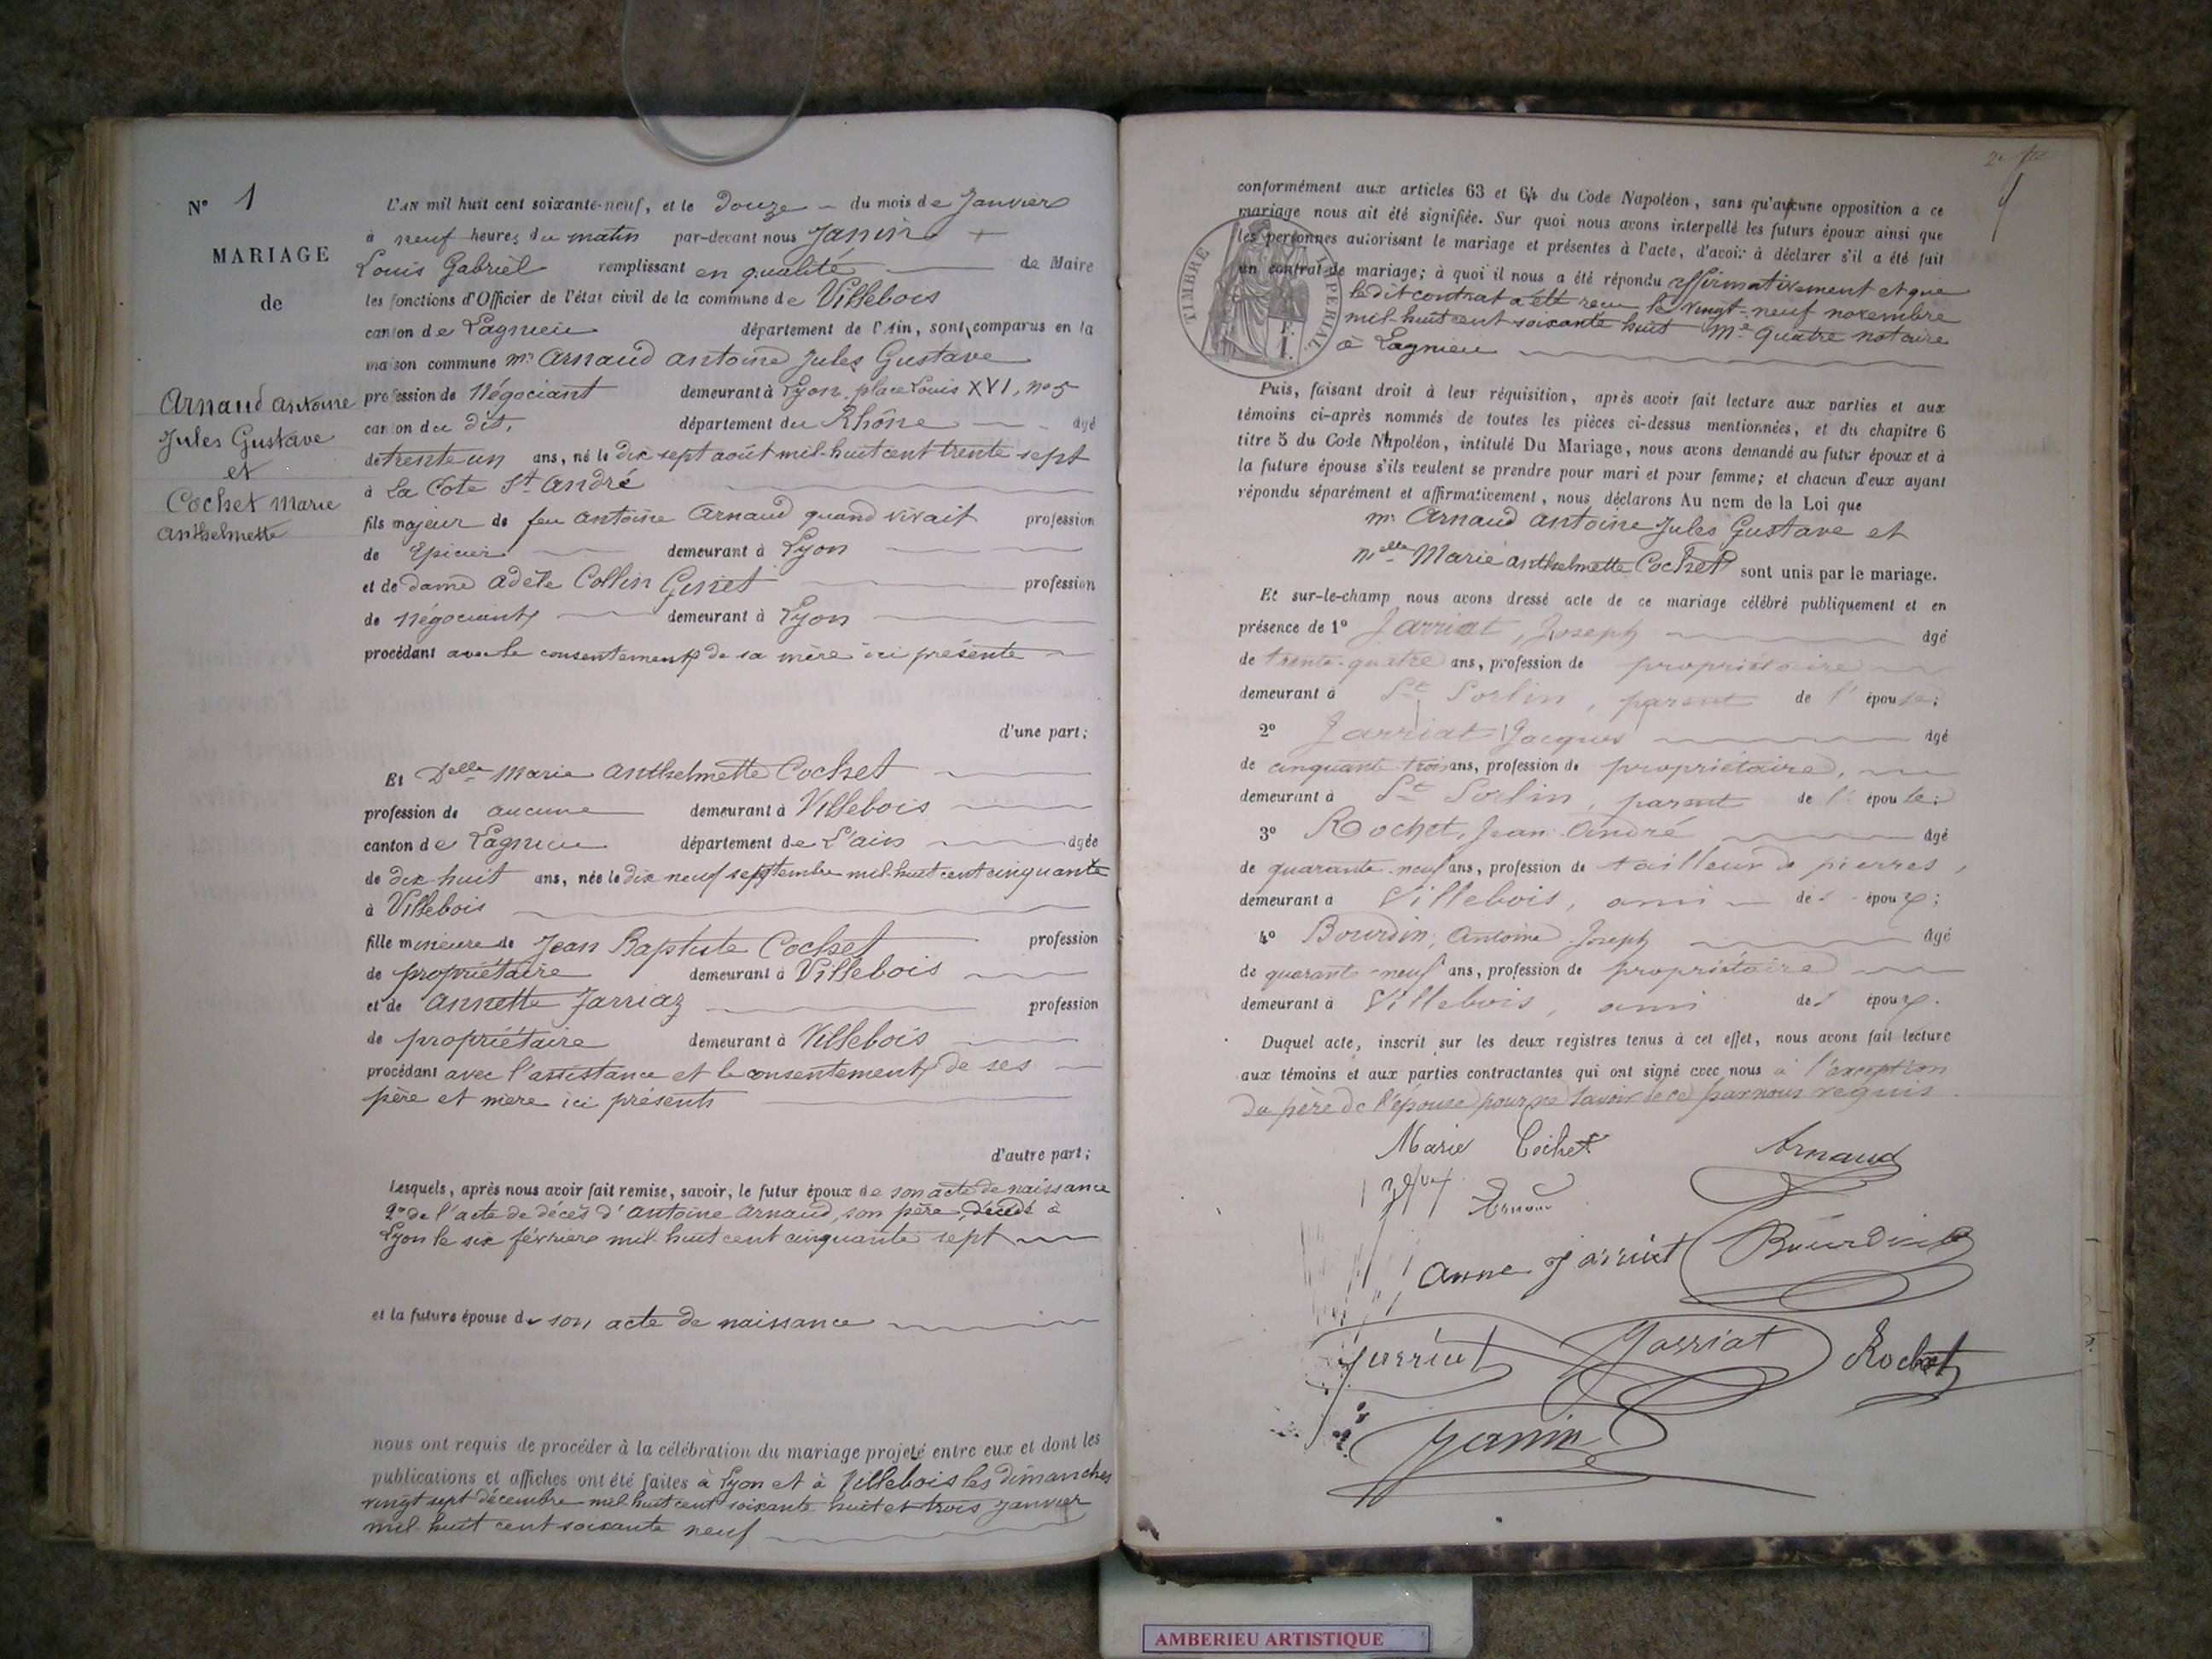 N° 1
MARIAGE
de
Arnaud Antoine
Jules Gustave
et
Cochet Marie
Anthelmette
L'AN mil huit cent soixante-neuf, et le Douze du mois de Janvier
à neuf heures du matin par-devant nous Janin
Louis Gabriel remplissant en qualité de Maire
les fonctions d'Officier de l'état civil de la commune de Villebois
canton de Lagnieu département de l'Ain, sont comparus en la
maison commune Mr Arnaud Antoine Jules Gustave
profession de Négociant demeurant à Lyon, place Louis XVI, no 5
canton du dit, département du Rhône âgé
de trente un ans, né le dix sept août mil-huit cent trente sept
à La Cote St André
fils majeur de feu Antoine Arnaud quand vivait profession
de Epicier demeurant à Lyon
et de dame Adèle Collin Genet profession
de Négociante demeurant à Lyon
procédant avec le consentement de sa mère ici présente
d'une part;
Et Delle Marie Anthelmette Cochet
profession de aucune demeurant à Villebois
canton de Lagnieu département de L'ain âgée
de dix huit ans, née le dix neuf septembre mil-huit cent cinquante
à Villebois
fille mineure de Jean Baptiste Cochet profession
de propriétaire demeurant à Villebois
et de Annette Jarriaz profession
de propriétaire demeurant à Villebois
procédant avec l'assistance et le consentement de ses
père et mère ici présents
d'autre part;
Lesquels, après nous avoir fait remise, savoir, le futur époux de son acte de naissance
2° de l'acte de décès d'Antoine Arnaud, son père, décédé à
Lyon le six février mil huit cent cinquante sept
et la future épouse de son acte de naissance
nous ont requis de procéder à la célébration du mariage projeté entre eux et dont les
publications et affiches ont été faites à Lyon et à Villebois les dimanches
vingt sept décembre mil huit cent soixante huit et trois janvier
mil huit cent soixante neuf
conformément aux articles 63 et 64 du Code Napoléon, sans qu'aucune opposition à ce
mariage nous ait été signifiée. Sur quoi nous avons interpellé les futurs époux ainsi que
les personnes autorisant le mariage et présentes à l'acte, d'avoir à déclarer s'il a été fait
un contrat de mariage; à quoi il nous a été répondu affirmativement et que
le dit contrat a été reçu le vingt-neuf novembre
mil-huit cent soixante huit Me Quatre notaire
à Lagnieu
TIMBRE IMPERIAL
Puis, faisant droit à leur réquisition, après avoir fait lecture aux parties et aux
témoins ci-après nommés de toutes les pièces ci-dessus mentionnées, et du chapitre 6
titre 5 du Code Napoléon, intitulé Du Mariage, nous avons demandé au futur époux et à
la future épouse s'ils veulent se prendre pour mari et pour femme; et chacun d'eux ayant
répondu séparément et affirmativement, nous déclarons Au nom de la Loi que
Mr Arnaud Antoine Jules Gustave et
Melle Marie Anthelmette Cochet sont unis par le mariage.
Et sur-le-champ nous avons dressé acte de ce mariage célébré publiquement et en
présence de 1° Jarriat, Joseph âgé
de trente-quatre ans, profession de propriétaire
demeurant à St Sorlin, parent de l'épouse;
2° Jarriat Jacques âgé
de cinquante trois ans, profession de propriétaire,
demeurant à St Sorlin, parent de l'épouse;
3° Rochet, Jean André âgé
de quarante-neuf ans, profession de tailleur de pierres,
demeurant à Villebois, ami des époux;
4° Bourdin, Antoine Joseph âgé
de quarante-neuf ans, profession de propriétaire
demeurant à Villebois, ami des époux.
Duquel acte, inscrit sur les deux registres tenus à cet effet, nous avons fait lecture
aux témoins et aux parties contractantes qui ont signé avec nous à l'exception
du père de l'épouse pour ne savoir de ce par nous requis.
Marie Cochet Arnaud
Arnaud
Anne Jarriat Bourdin
Jarriat Jarriat Rochet
Janin
AMBERIEU ARTISTIQUE